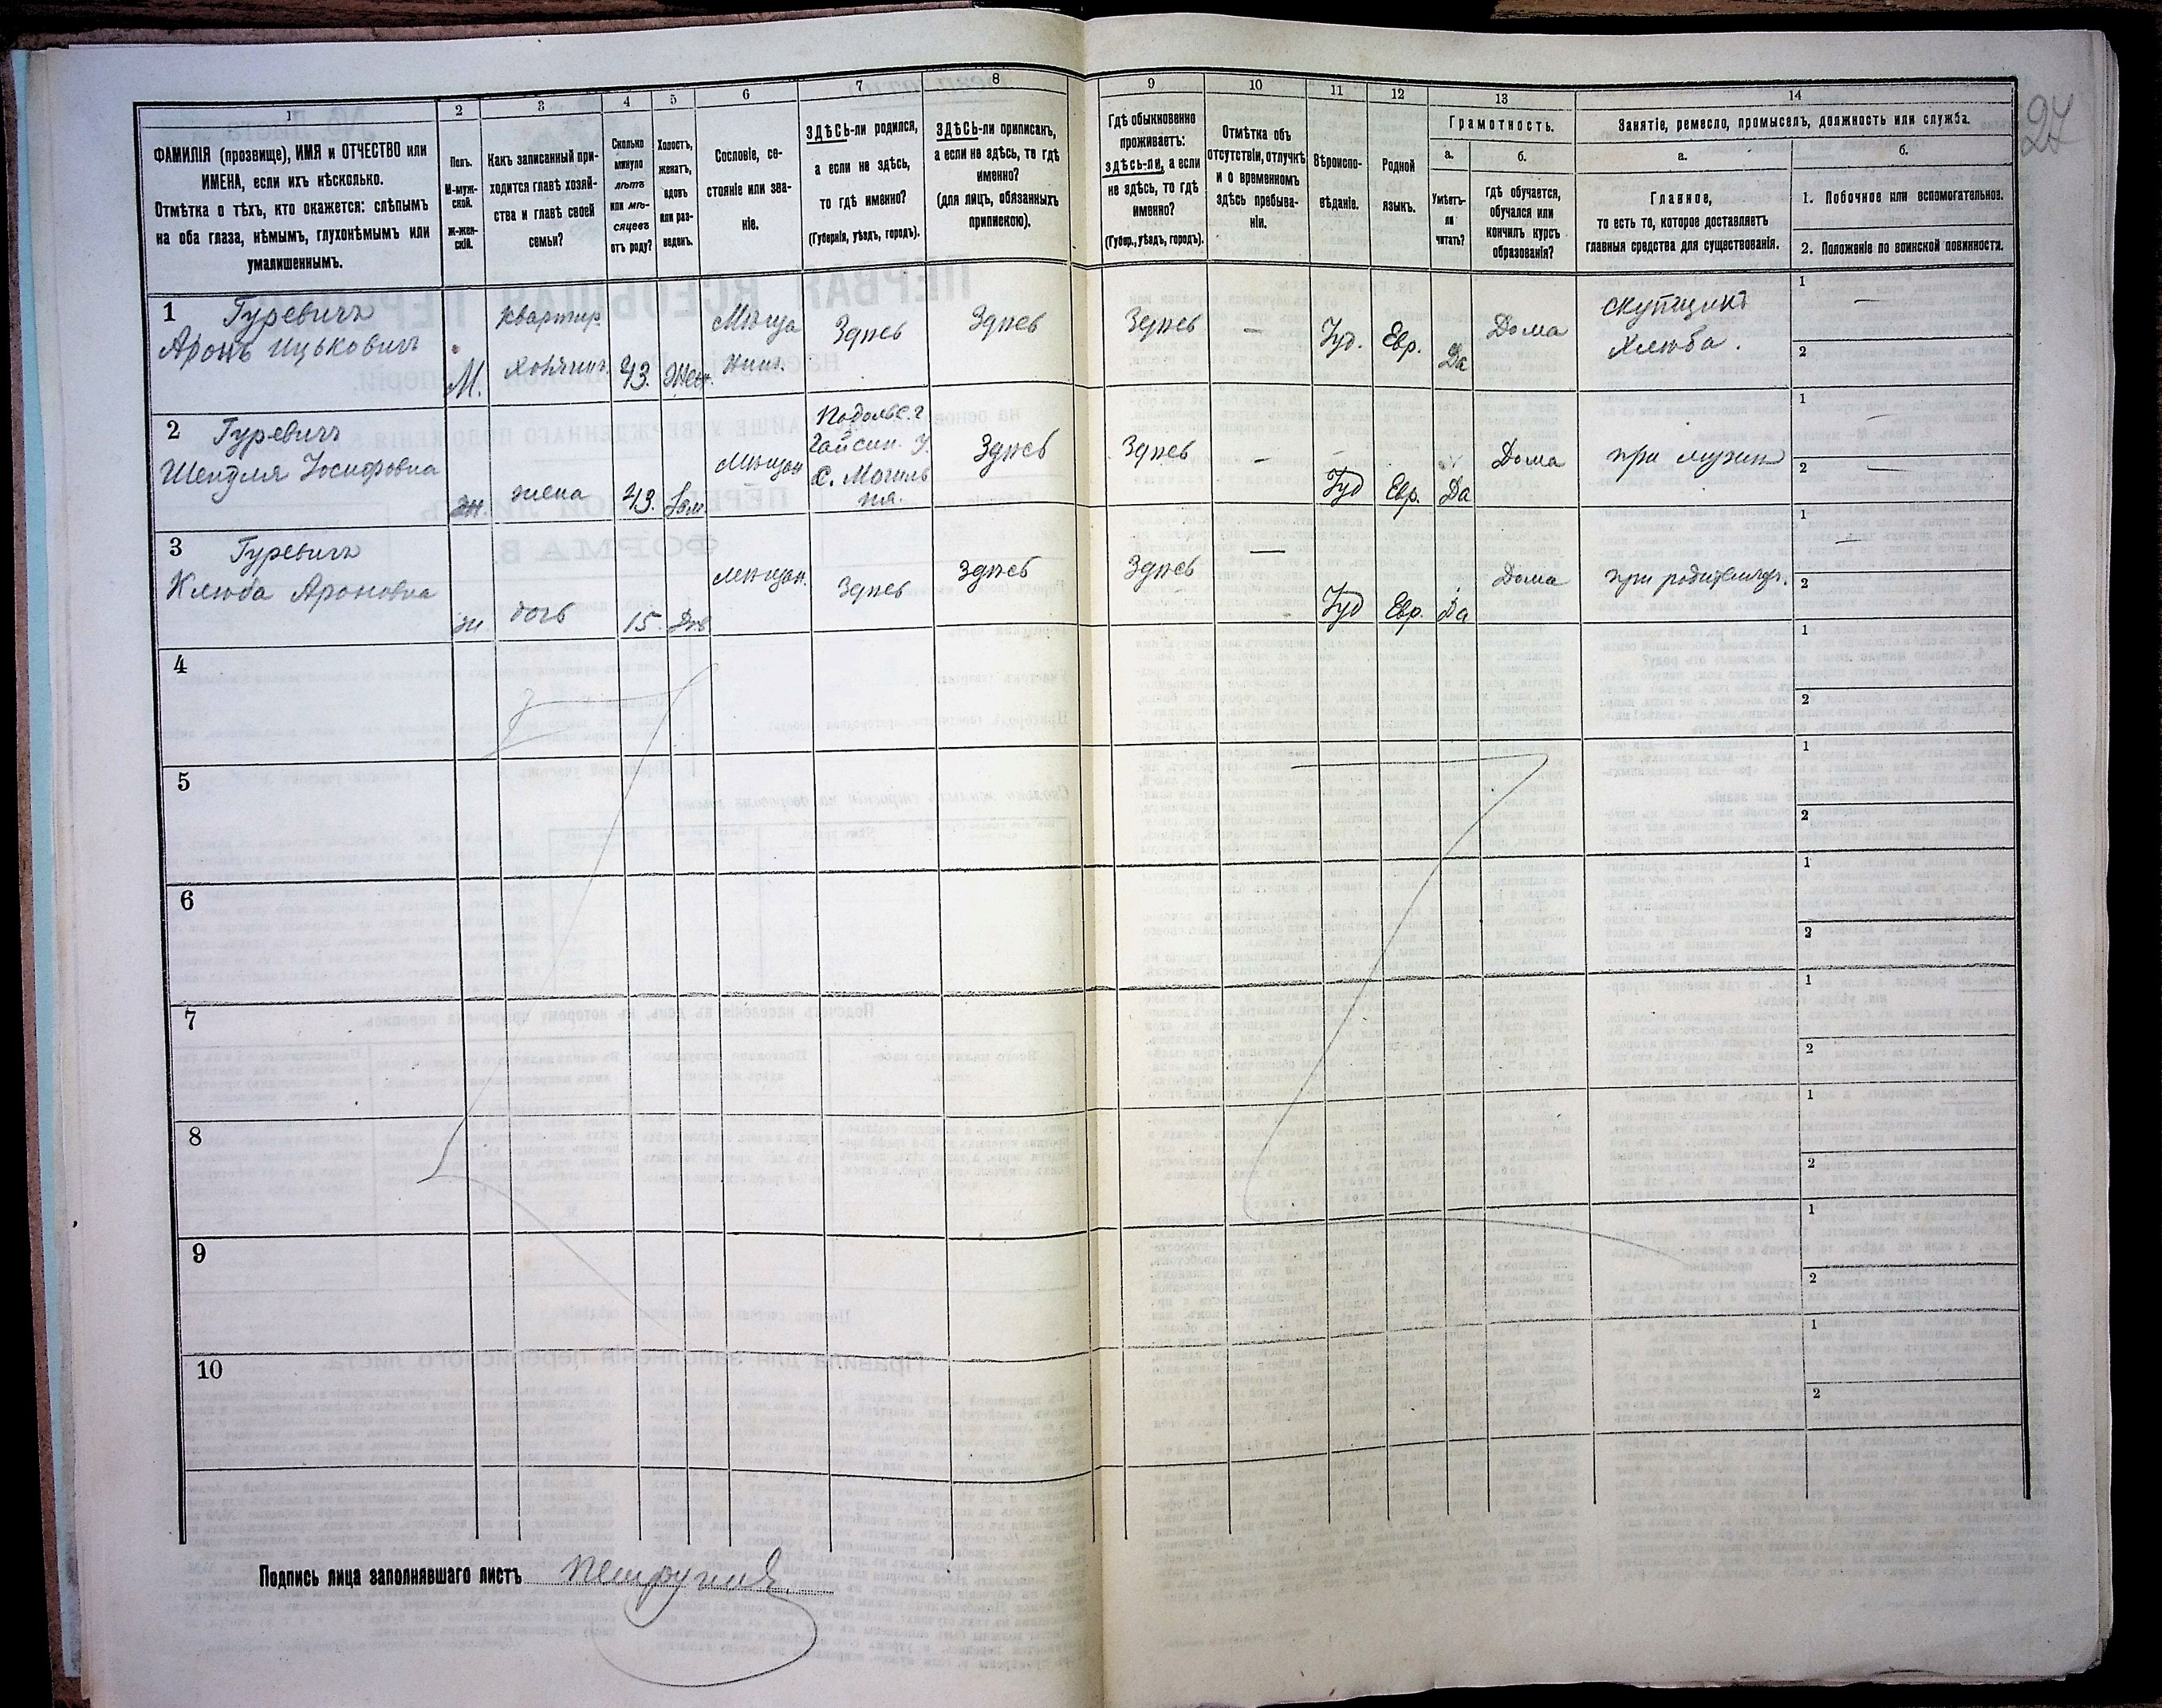 27
1
2
3
4
5
6
7
8
9
10
11
12
13
14
ФАМИЛІЯ (прозвище), ИМЯ и ОТЧЕСТВО или
ИМЕНА, если ихъ нѣсколько.
Отмѣтка о тѣхъ, кто окажется: слѣпымъ
на оба глаза, нѣмымъ, глухонѣмымъ или
умалишеннымъ.
Полъ.
М-муж-
ской.
Ж-жен-
скій.
Какъ записанный при-
ходится главѣ хозяй-
ства и главѣ своей
семьи?
Сколько
минуло
лѣтъ
или мѣ-
сяцевъ
отъ роду?
Холостъ,
женатъ,
вдовъ
или раз-
веденъ.
Сословіе, со-
стояніе или зва-
ніе.
ЗДѢСЬ-ли родился,
а если не здѣсь,
то гдѣ именно?
(Губернія, уѣздъ, городъ).
ЗДѢСЬ-ли приписанъ,
а если не здѣсь, то гдѣ
именно?
(для лицъ, обязанныхъ
припискою).
Гдѣ обыкновенно
проживаетъ:
здѣсь-ли, а если
не здѣсь, то гдѣ
именно?
(Губер., уѣздъ, городъ).
Отмѣтка объ
отсутствіи, отлучкѣ
и о временномъ
здѣсь пребыва-
ніи.
Вѣроиспо-
вѣданіе.
Родной
языкъ.
Грамотность.
а.
б.
Умѣетъ-
ли
читать?
гдѣ обучается,
обучался или
кончилъ курсъ
образованія?
Занятіе, ремесло, промыселъ, должность или служба.
а.
б.
Главное,
то есть то, которое доставляетъ
главныя средства для существованія.
1. Побочное или вспомогательное.
2. Положеніе по воинской повинности.
1 Гуревичъ
Аронъ Ицьковичъ
М.
квартир.
хозяинъ
43.
Жен.
Мѣща
нинъ.
Здѣсь
Здѣсь
Здѣсь
—
Іуд.
Евр.
Да
Дома
скупщикъ
хлѣба.
1 —
2
2 Гуревичъ
Шендля Іосифовна
ж.
жена
43.
Зам.
мѣщан
Подольс. г
Гайсин. у.
с. Могиль
ня.
Здѣсь
Здѣсь
—
Іуд
Евр.
Да
Дома
при мужи
1 —
2 —
3 Гуревичъ
Хлюба Ароновна
ж
дочь
15.
Дѣв
мѣщан.
Здѣсь
Здѣсь
Здѣсь
—
Іуд
Евр.
Да
Дома
при родителях.
1 —
2
4
1
2
5
1
2
6
1
2
7
1
2
8
1
2
9
1
2
10
1
2
Подпись лица заполнявшаго листъ